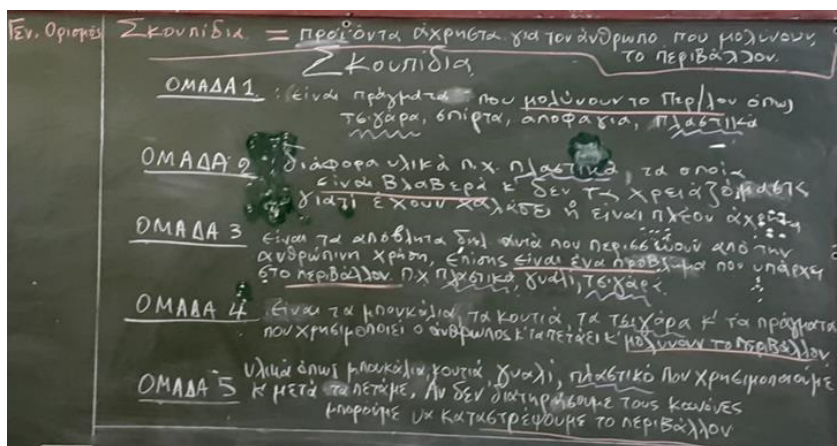 Γεν. Ορισμός Σκουπίδια = προϊόντα άχρηστα για τον άνθρωπο που μολύνουν
το περιβάλλον.
Σκουπίδια
ΟΜΑΔΑ 1 : είναι πράγματα που μολύνουν το Περ/λον όπως
τσιγάρα, σπίρτα, αποφάγια, πλαστικά
ΟΜΑΔΑ 2 : διάφορα υλικά π.χ. πλαστικά, τα οποία
είναι βλαβερά κ' δεν τα χρειαζόμαστε
γιατί έχουν χαλάσει ή είναι πλέον άχρηστα
ΟΜΑΔΑ 3 είναι τα απόβλητα δηλ. αυτά που περισσεύουν από την
ανθρώπινη χρήση, επίσης είναι ένα πρόβλημα που υπάρχει
στο περιβάλλον. π.χ πλαστικά, γυαλί, τσιγάρα
ΟΜΑΔΑ 4 είναι τα μπουκάλια, τα κουτιά, τα τσιγάρα κ' τα πράγματα
που χρησιμοποιεί ο άνθρωπος κ' τα πετάει κ' μολύνουν το περιβάλλον.
ΟΜΑΔΑ 5 υλικά όπως μπουκάλια, κουτιά, γυαλί, πλαστικό που χρησιμοποιούμε
κ' μετά τα πετάμε. Αν δεν διατηρήσουμε τους κανόνες
μπορούμε να καταστρέψουμε το περιβάλλον